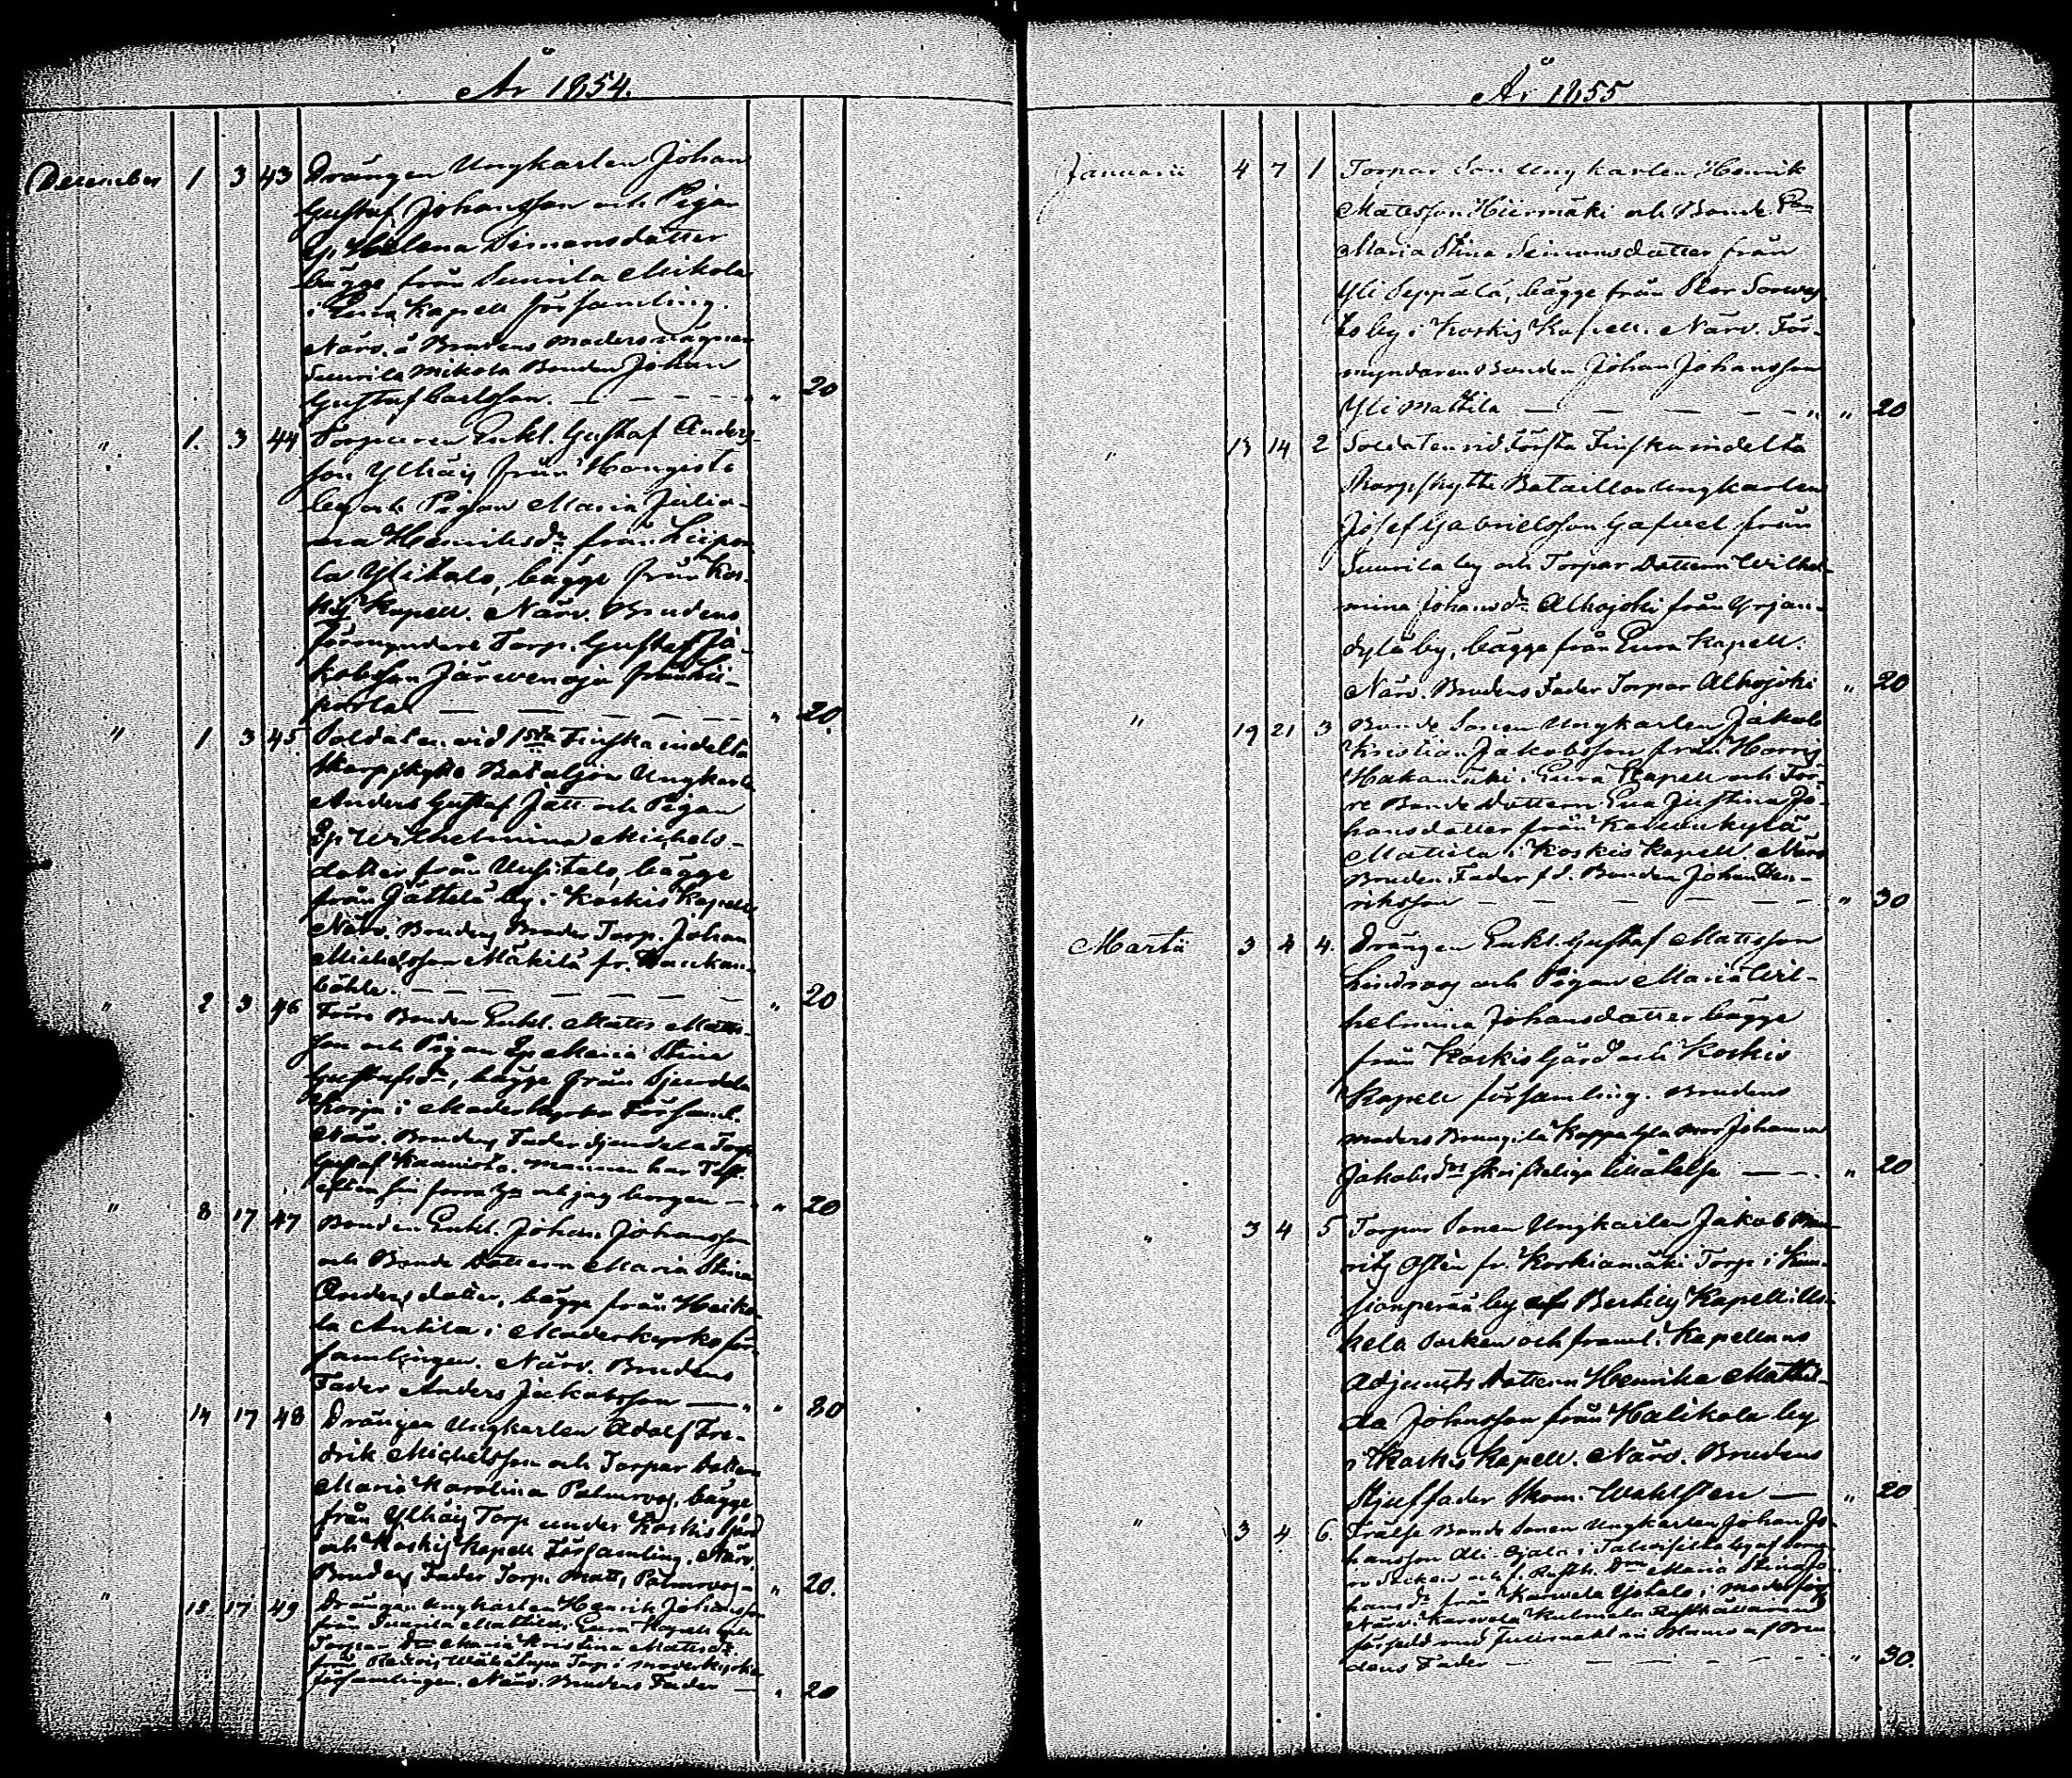 År 1854.
December 1 3 43 Drängen Ungkarlen Johan
Gustaf Johansson och Pigan
Helena Simonsdatter
bägge från Suurila Mikola
i Eura Kapell församling.
Närv. Brudens
Suurila Mikola Bonden Johan
Gustaf Carlsson. — — — " 20
" 1. 3 44 Torparen Enkl. Gustaf Anders-
son Ylhäis från Hongisto
by och Pigan Maria Julia-
na Henriksdr från Liipo
la Ylitalo, bägge från Kos-
kis Kapell. Närv. Brudens
Förmyndare Torp. Gustaf Ja-
kobsson Järwenoja från Lii-
pola — — — " 20.
" 1 3 45. Soldaten vid 1sta Finska indelta
skarpskytte Bataljon Ungkarln
Anders Gustaf Jätt och Pigan
Wilhelmina Michels-
dotter från Uusitalo, bägge
från Jättelä by i Koskis Kapell
Närv. Brudens Broder Torp. Johan
Michelsson Mäkilä fr.
böhle. — — — " 20
" 2 3 46 Förre Bonden Enkl. Matts Matts-
son och Pigan Maria Stina
Gustafsdr, bägge från
Korja i Moderkyrko Församl.
Närv. Brudens Fader Torp.
Gustaf Mannen har Test.
efter sin förra och jag borgen — " 20
" 8 17 47 Bonden Enkl. Johan Johansson
och Bonde Dottern Maria Stina
Andersdotter, bägge från Heiko
la Antila i Moderkyrko för-
samlingen. Närv. Brudens
Fader Anders Jakobsson — " " 30
" 14 17 48 Drängen Ungkarlen Adolf Fre-
drik Michelsson och Torpar Dottern
Maria Karolina Palmroos, bägge
från Ylhäis Torp under Koskis Gård
och Koskis Kapell Församling. Närv.
Brudens Fader Torp. Matts Palmroos — " 20.
" 15 17 49 Drängen Ungkarlen Henrik Johansson
från Suurila Mattila i Eura Kapell och
Torpar Dn Maria Kristina Mattsdr
från Torp i moderkyrko
församlingen. Närv. Brudens Fader — " 20
År 1855
Januarii 4 7 1 Torpar Son Ungkarlen Henrik
Matsson Hiiermäki och Bonde Dn
Maria Stina Simonsdatter från
Yli Seppälä, bägge från Stor Sorwas
to by i Koskis Kapell. Närv. För-
myndaren Bonden Johan Johansson
Yli Mattila — — — " " 20
" 13 14 2 Soldaten vid Första Finska indelta
Skarpskytte Bataillon Ungkarlen
Josef Gabrielsson Gafvel från
Suurila by och Torpar Dottern Wilhel-
mina Johansdr Alhojoki från Yrjän-
dylä by, bägge från Eura Kapell.
Närv. Brudens Fader Torpar Alhojoki " 20
" 19 21 3 Bonde Sonen Ungkarlen Jakob
Kristian Jakobsson från Horris
Hakamäki i Eura Kapell och För-
re Bonde Dottern Eva Justina Jo-
hansdotter från Keituukylä
Mattila i Koskis Kapell Närv.
Brudens Fader f.d. Bonden Johan Hen-
riksson — — — " 30
Martii 3 4 4. Drängen Enkl. Gustaf Mattsson
Lindroos och Pigan Maria Wil-
helmina Johansdatter bägge
från Koskis Gård och Koskis
Kapell församling. Brudens
moders Johanna
Jakobsdrs skriftliga tillåtelse — . " 20
" 3 4 5 Torpar Sonen Ungkarlen Jakob Mau-
ritz Osten fr. Korkiamäki Torp i Kun-
sionperää by Bertils Kapell i Us-
kela Socken och framl. Kapellans
Adjuncts Dottern Henrika Mathil-
da Johnsson från Halikola by
i Koskis Kapell. Närv. Brudens
Stjuffader Skom. Wahlsten — " 20
" 3 4 6 Frälse Bonde Sonen Ungkarlen Johan Jo-
hansson Ali-Ojala i Talwisilta by af
Socken och f. Rusth. Dn Maria Stina Jo-
hansdr från Karwela Yötalo i moderförs.
Närv. Karwela Kulmala Rusthållaren
försedd med af Bru-
dens Fader — — — " 30.